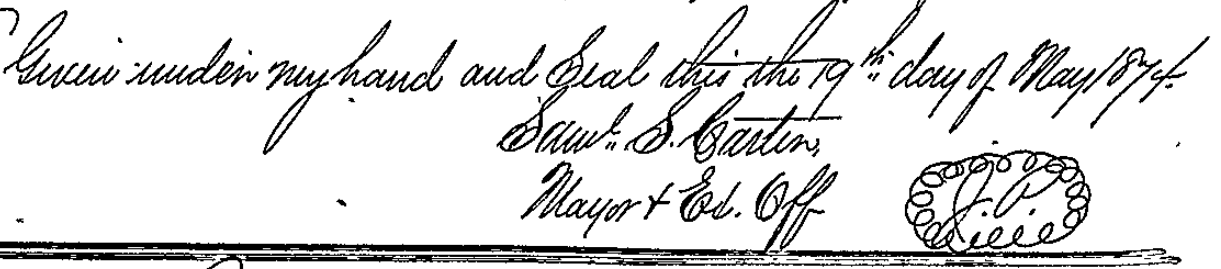 Given under my hand and Seal this the 19th day of May 1874.
Saml. S. Carter,
Mayor & Ex. Off
J. P.